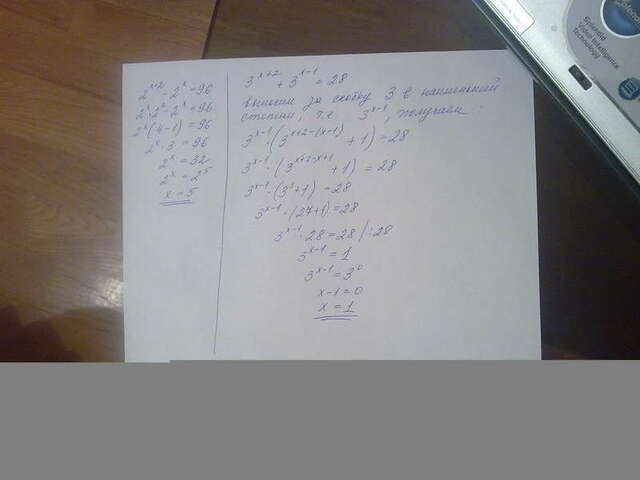 2^{x+2} - 2^x = 96
2^x · 2^2 - 2^x = 96
2^x (4-1) = 96
2^x · 3 = 96
2^x = 32
2^x = 2^5
x = 5
3^{x+2} + 3^{x-1} = 28
выносим за скобку 3 в наименьшей
степени, т.е 3^{x-1}, получаем:
3^{x-1} · (3^{x+2-(x-1)} + 1) = 28
3^{x-1} · (3^{x+2-x+1} + 1) = 28
3^{x-1} · (3^3 + 1) = 28
3^{x-1} · (27+1) = 28
3^{x-1} · 28 = 28 / :28
3^{x-1} = 1
3^{x-1} = 3^0
x-1 = 0
x = 1
Splendid
Video Intelligence
Technology